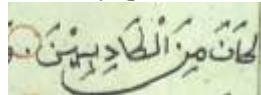 كَانَ مِنَ الْكَاذِبِينَ